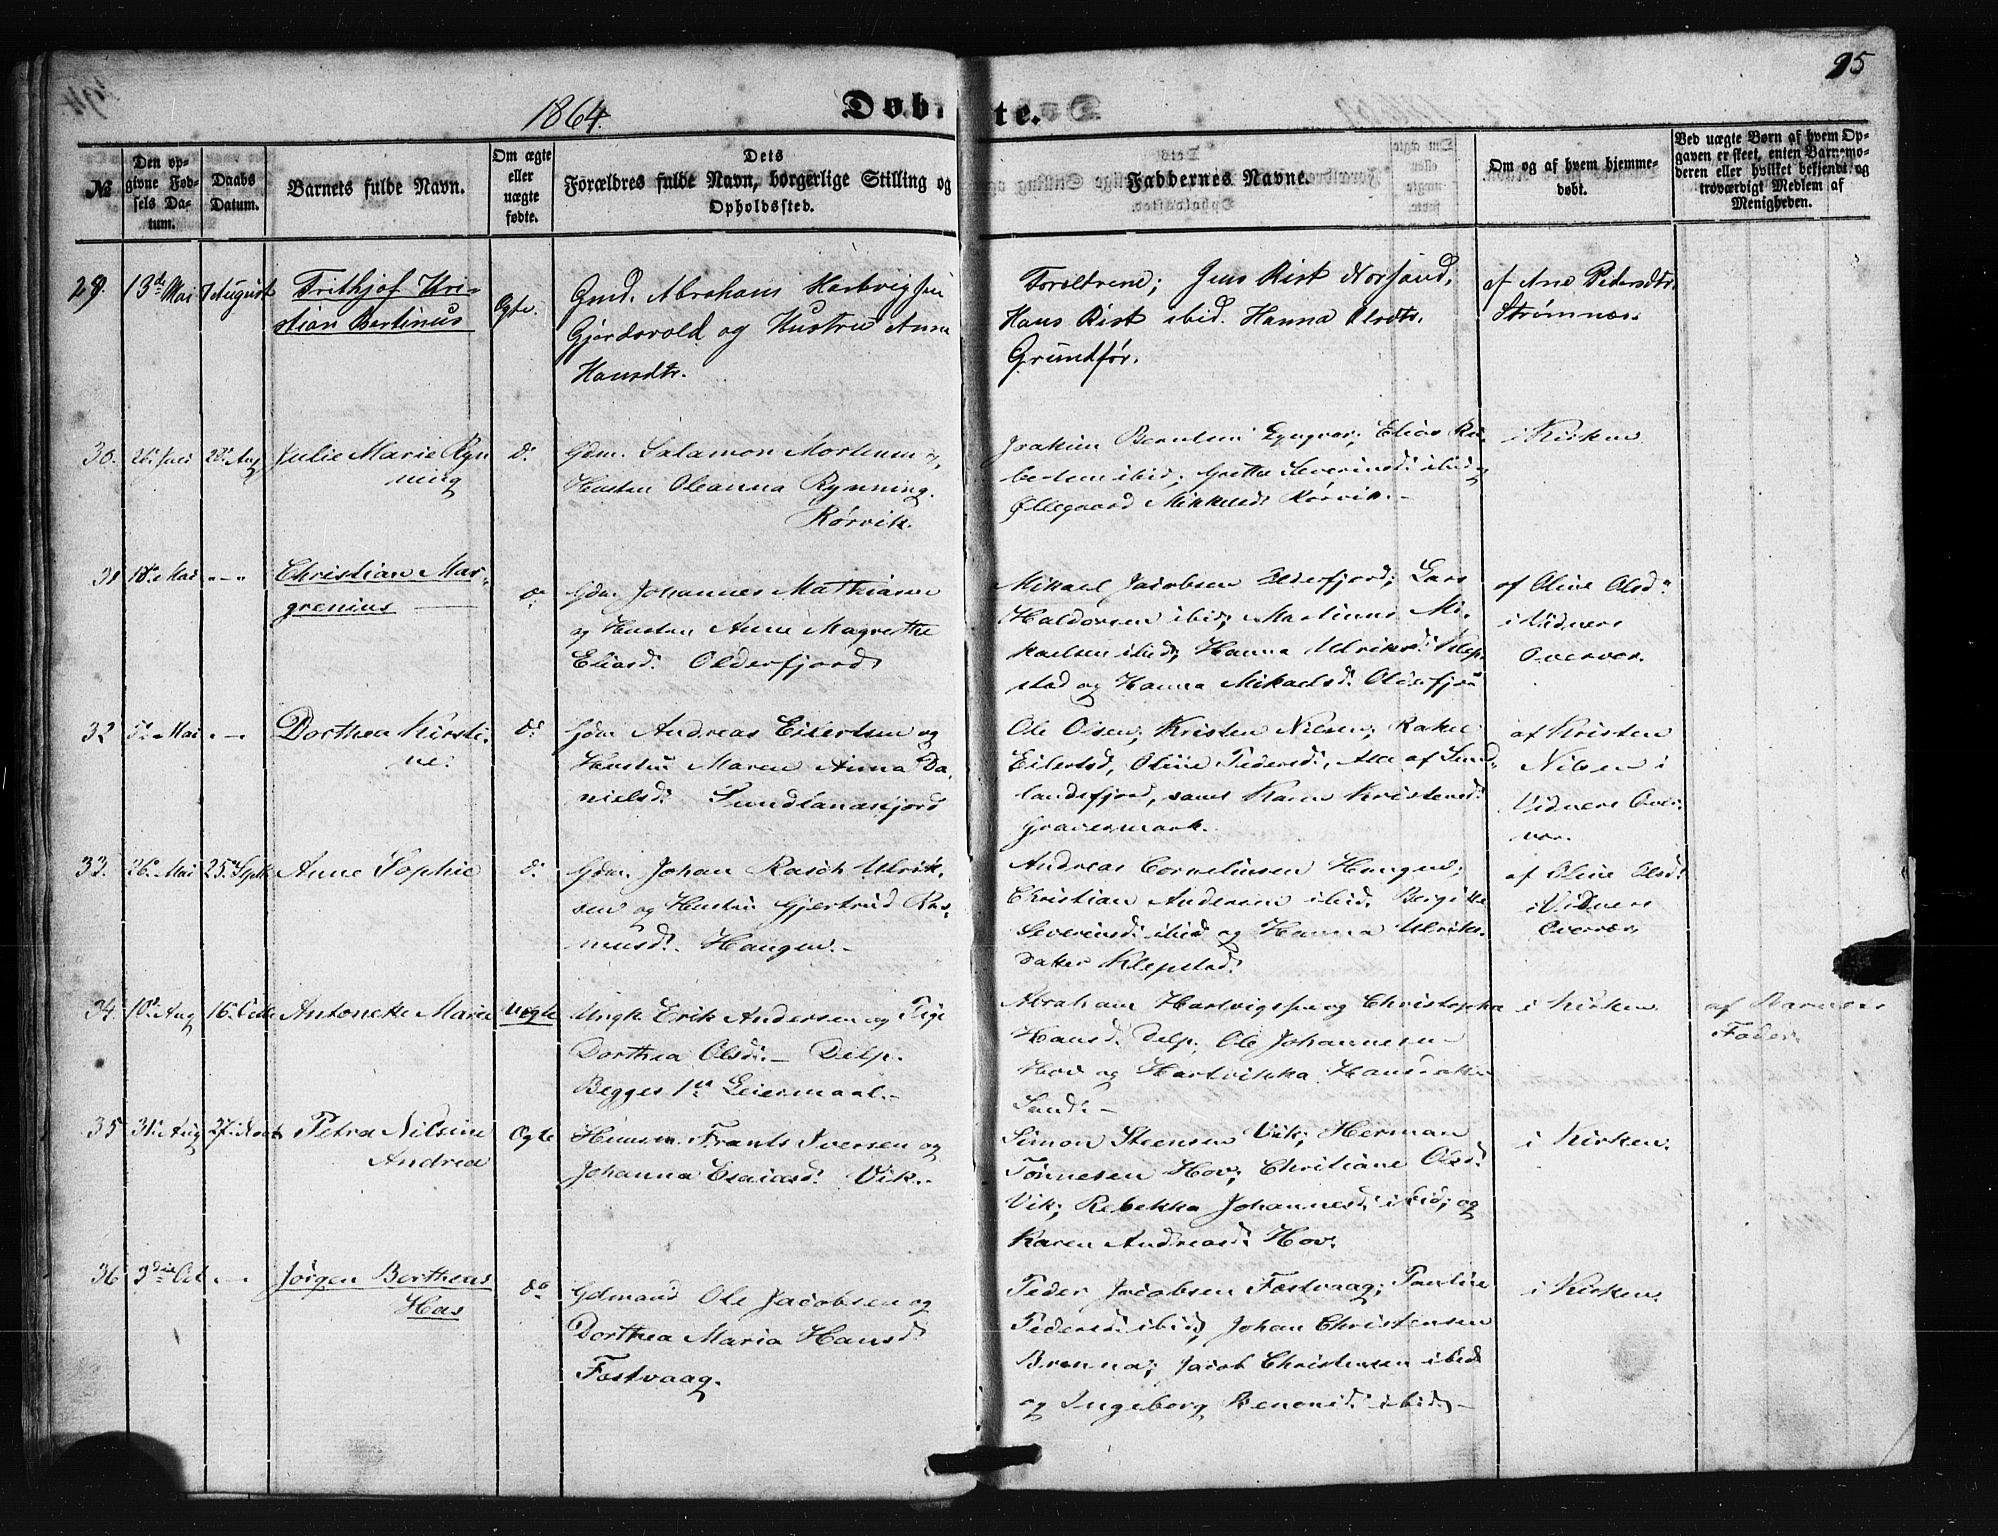 95
1864.
Døbte.
No
Den opgivne Fødsels Datum.
Daabs Datum.
Barnets fulde Navn.
Om ægte eller uægte fødte.
Dets Forældres fulde Navn, borgerlige Stilling og Opholdssted.
Faddernes Navne.
Om og af hvem hjemmedøbt.
Ved uægte Børn af hvem Opgaven er skeet, enten Barnemoderen eller hvilket bekjendt og troværdigt Medlem af Menigheden.
29. 13de Mai 7 August Frithjof Kri-
stian Bertinus
Ogte.
Gmd. Abraham Hartvigsen
Gjerdsvold og Hustru Anna
Hansdtr.
Foreldrene; Jens Rist Norsand,
Hans Rist ibid. Hanna Olsdtr.
Grundfør.
af Ane Pedersdtr.
Strømnæs.
30. Julie Marie Ryn
ning
d:
Gdm. Salamon Mortensen og
Hustru Oleanna Rynning.
Rørvik.
Joakim Berntsen
ibid; Grethe Severinsd: ibid og
Ellegaard Mikkelsd: Rørvik.-
i Kirken
31 18de Mai -"- Christian Mar-
grenius
do
Gdm. Johannes Mathiasen
og Hustru Anne Magrethe
Eliasd: Olderfjord
Mikael Jacobsen Olderfjord; Lars
Haldorsen ibid; Martinus Mi-
kaelsen ibid; Hanna Ulriksd: Klep-
stad og Hanna Mikaelsd: Olderfjord
af Oline Olsd:
i Vidners
Overvær.
32 Mai -"- Dorthea Kirsti-
ne.
do
Gdm Andreas Eilertsen og
Hustru Maren Anna Da-
nielsd: Sundlandsfjord
Ole Olsen; Kristen Nilsen; Rakel
Eilertsd, Oline Pedersd:, Alle af Sund-
landsfjord, samt Karen Kristensd:
Gravermark.
af Kristen
Nilsen i
Vidners Over-
vær.
33. 26de Mai 25de Septbr Anne Sophie
d:
Gdm. Johan Rasch Ulrik-
sen og Hustru Gjertrud Ras-
musd: Haugen.-
Andreas Corneliusen Haugen;
Christian Andersen ibid. Birgitte
Severinsd: ibid og Hanna Ulriks-
datter Klepstad.
af Oline Olsd:
i Vidners
Overvær.
34. 10de Aug 16de Octbr Antonette Marie
Uegte
Ungk. Erik Andersen og Pige
Dorthea Olsd:- Delp.
Begges 1ste Leiermaal.-
Abraham Hartvigsen og Christopha
Hansd: Delp; Ole Johannesen
Hov og Hartvikka Hansdatter
Sand:-
i Kirken
af Barnets
Fader.
35 31te Aug 27de Petra Nilsine
Andrea
Ogte
Huusm. Frants Iversen og
Johanna Esaiasd: Vik.-
Simon Steensen Vik; Herman
Tønnesen Hov; Christiane Olsd:
Vik; Rebekka Johannesd: ibid; og
Karen Andreasd: Hov.
i Kirken.
36 3die Oct -"- Jørgen Bertheus
Has
do
Gdmand Ole Jacobsen og
Dorthea Maria Hansd:
Festvaag.
Peder Jacobsen Festvaag; Pauline
Pedersd: ibid; Johan Christensen
Brenna; Jacob Christensen ibid
og Ingeborg Benonisd: ibid.-
i Kirken